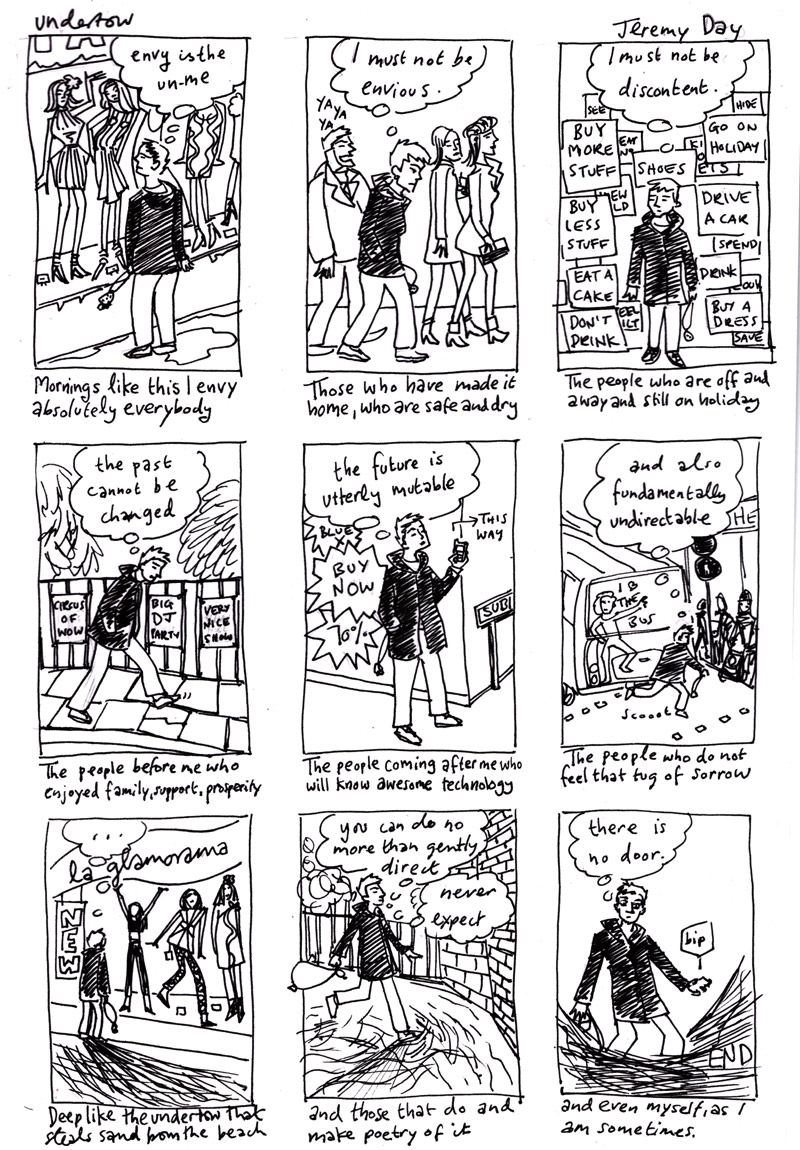 undertow
Jeremy Day
envy is the
un-me
Mornings like this I envy
absolutely everybody
I must not be
envious.
YA YA
YA
Those who have made it
home, who are safe and dry
I must not be
discontent.
SEE
HIDE
BUY
MORE
STUFF
EAT
SHOES
GO ON
HOLIDAY
BUY
LESS
STUFF
DRIVE
A CAR
SPEND
EAT A
CAKE
DRINK
DON'T
DRINK
BUY A
DRESS
SAVE
The people who are off and
away and still on holiday
the past
cannot be
changed
CIRCUS
OF
WOW
BIG
DJ
PARTY
VERY
NICE
SHOW
The people before me who
enjoyed family, support, prosperity
the future is
utterly mutable
THIS
WAY
BLUE
BUY
NOW
10%
SUB
The people coming after me who
will know awesome technology
and also
fundamentally
undirectable
HE
BUS
scooot
The people who do not
feel that tug of sorrow
...
la glamorama
NEW
Deep like the undertow that
steals sand from the beach
you can do no
more than gently
direct
never
expect
and those that do and
make poetry of it
there is
no door.
bip
END
and even myself, as I
am sometimes.